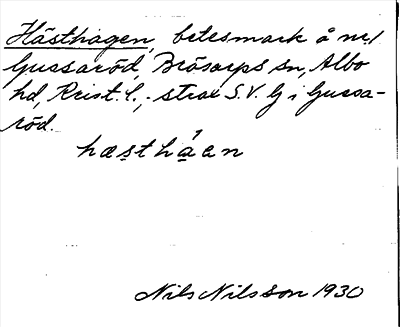 Hästhagen, betesmark å nr 1
Gussaröd, Brösarps sn, Albo
hd, Krist. l., strax S.V. G i Gussa-
röd.
hæsthåan
Nils Nilsson 1930